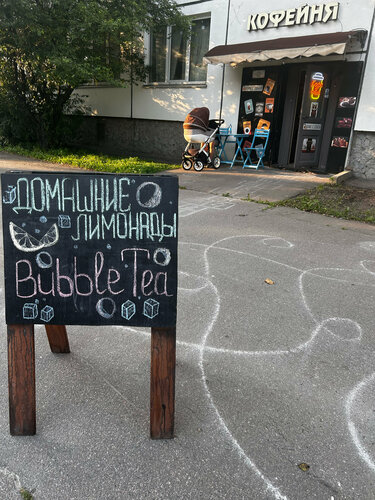 КОФЕЙНЯ
ДОМАШНИЕ
ЛИМОНАДЫ
Bubble Tea